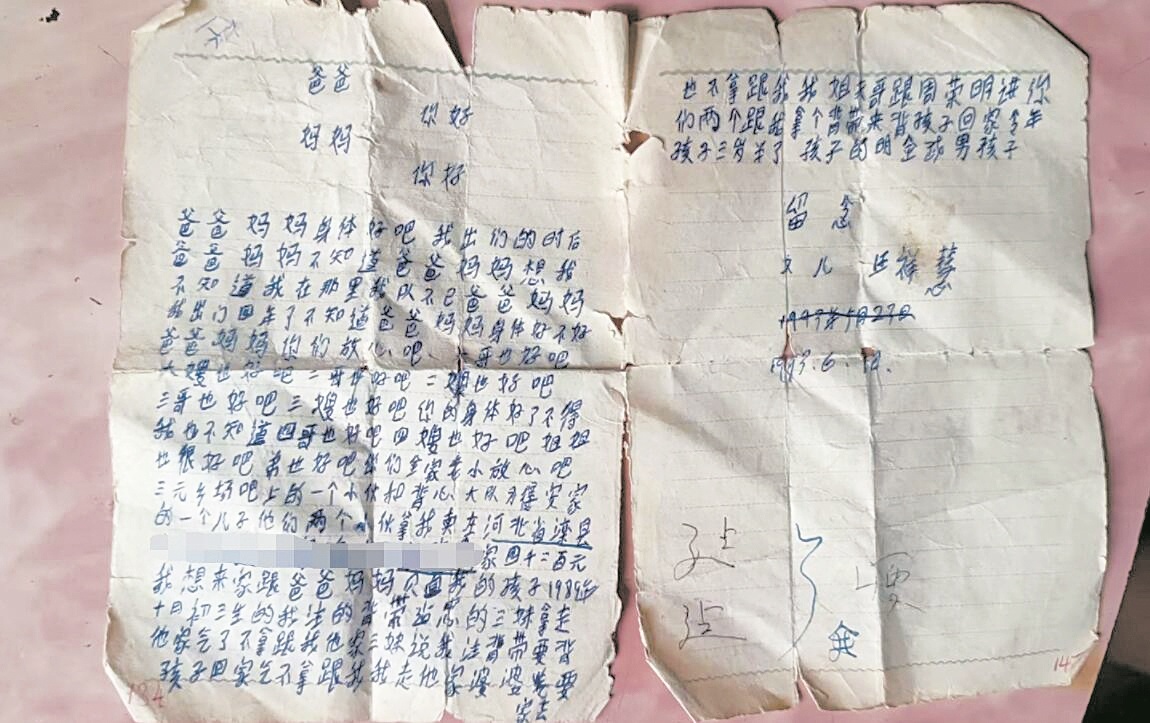 爸爸
你好
妈妈
你好
爸爸妈妈身体好吧我出们的时后
爸爸妈妈不知道爸爸妈妈想我
不知道我在那里我以不己爸爸妈妈
我出门四年了不知道爸爸妈妈身体好不好
爸爸妈妈你们放心吧、哥也好吧
大嫂也好吧二哥也好吧二嫂也好吧
三哥也好吧三嫂也好吧你的身体好了不得
我也不知道四哥也好吧四嫂也好吧姐姐
也很好吧弟也好吧我们全家老小放心吧
三元乡场吧上的一个小伙和背心大队方安家
的一个儿子他们两个小伙拿我卖在河北省滦县
家四千二百元
我想来家跟爸爸妈妈见面我的孩子1989年
十月初三生的我注的背带当家的三妹拿走
他家气了不拿跟我他家三妹说我注背带要背
孩子回家气不拿跟我我走他家婆婆要
家去
也不拿跟我我姐夫哥跟周荣明讲你
们两个跟我拿个背带来背孩子回家今年
孩子三岁半了孩子的明全球男孩子
留念
女儿 祥慧
1993.6.12.
边
边
要
金
134
147